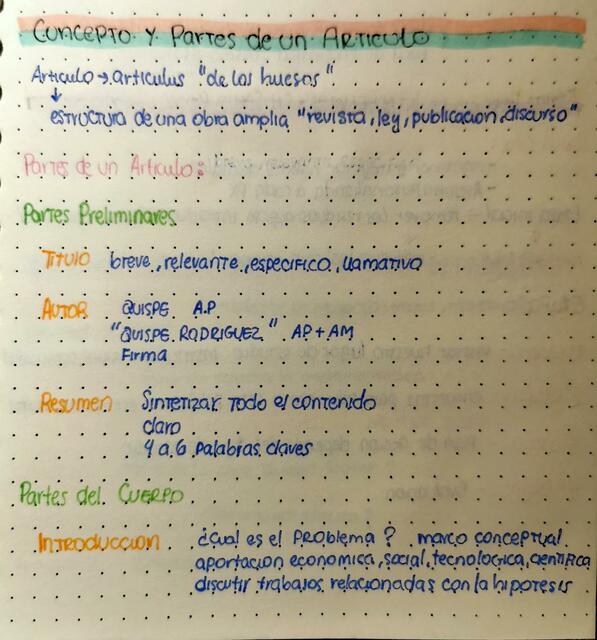 CONCEPTO Y Partes de un ARTICULO
Articulo → articulus "de los huesos"
↓
estructura de una obra amplia "revista, ley, publicacion, discurso"
Partes de un Articulo:
Partes Preliminares
Titulo breve, relevante, especifico, llamativo
AUTOR QUISPE A.P
"QUISPE RODRIGUEZ" AP + AM
Firma
Resumen Sintetizar todo el contenido
claro
4 a 6 palabras claves
Partes del CUERPO
INTRODUCCION ¿Cual es el PROBLEMA? marco conceptual
aportacion economica, social, tecnologica, cientifica
discutir trabajos relacionadas con la hipotesis